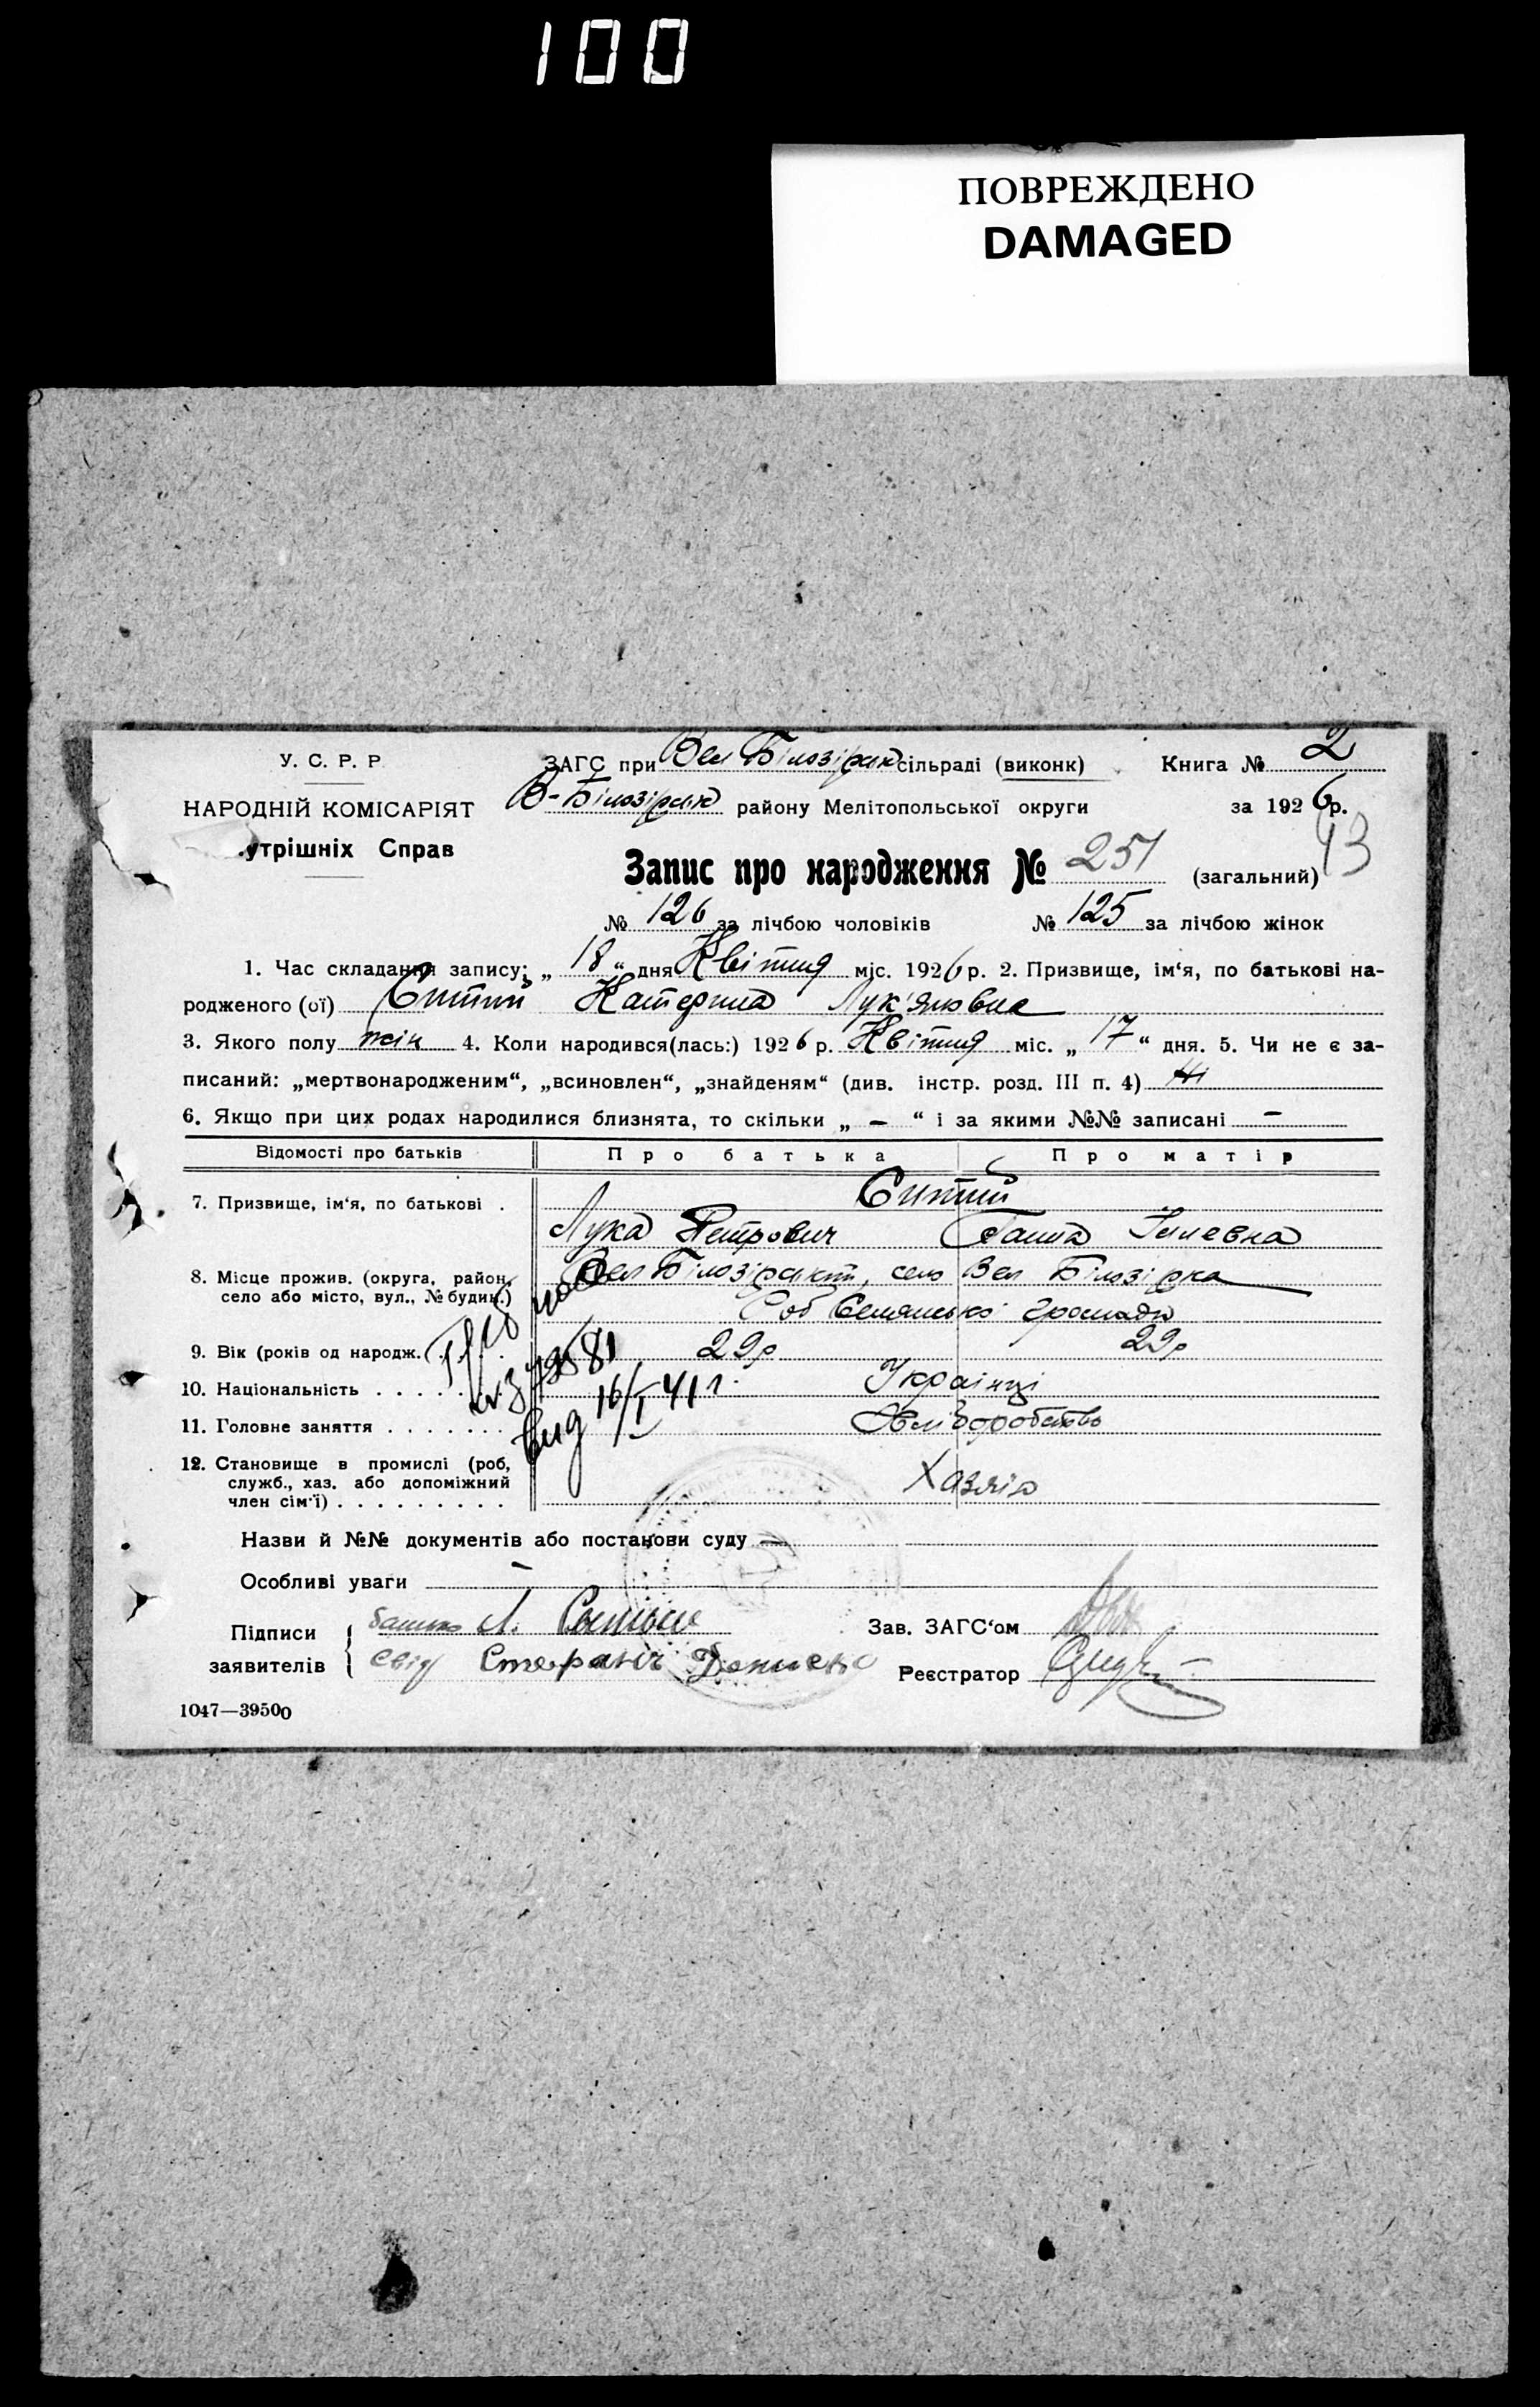 100
ПОВРЕЖДЕНО
DAMAGED
У. С. Р. Р
ЗАГС при Вел Білозірськ сільраді (виконк) Книга № 2
НАРОДНІЙ КОМІСАРІЯТ В-Білозірськ району Мелітопольської округи за 1926 р.
.утрішніх Справ
43
Запис про народження № 251 (загальний)
№ 126 за лічбою чоловіків № 125 за лічбою жінок
1. Час складання запису: „ 18 “ дня Квітня міс. 1926 р. 2. Призвище, ім‘я, по батькові на-
родженого (ої) Ситий Катерина Лук'яновна
3. Якого полу жін 4. Коли народився(лась:) 1926 р. Квітня міс. „ 17 “ дня. 5. Чи не є за-
писаний: „мертвонародженим“, „всиновлен“, „знайденям“ (див. інстр. розд. III п. 4) Ні
6. Якщо при цих родах народилися близнята, то скільки „ — “ і за якими №№ записані —
Відомості про батьків Про батька Про матір
7. Призвище, ім‘я, по батькові . Ситий
Лука Петрович Ганна
8. Місце прожив. (округа, район, Вел Білозірськ, село Вел Білозірка
село або місто, вул., № будин.)
громади
9. Вік (років од народж. 29р 29р
10. Національність . . . . Українці
16/I 41 г.
вид
11. Головне заняття . . . . . . . Хліборобство
12. Становище в промислі (роб,
служб., хаз. або допоміжний
член сім‘ї) . . . . . . . . . Хазяїн
Назви й №№ документів або постанови суду —
Особливі уваги —
Підписи батько Л. Сытый Зав. ЗАГС‘ом
заявителів свід Реєстратор
1047—39500